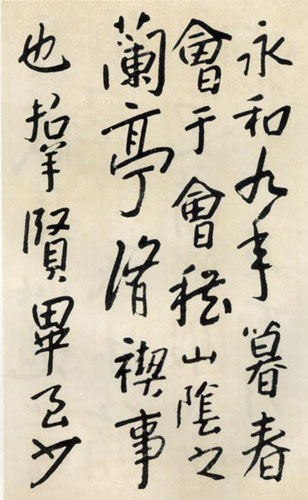 永和九年暮春
會于會稽山陰之
蘭亭脩禊事
也群賢畢至少